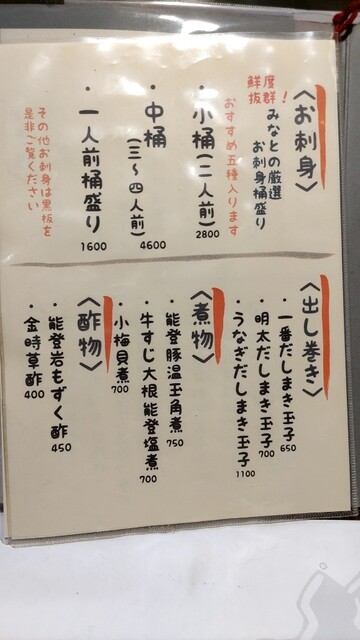 〈お刺身〉
鮮度
抜群！
みなとの厳選
お刺身桶盛り
おすすめ五種入ります
・小桶(二人前)
2800
・中桶
(三〜四人前)
4600
・一人前桶盛り
1600
その他お刺身は黒板を
是非ご覧ください
〈出し巻き〉
・一番だしまき玉子
650
・明太だしまき玉子
700
・うなぎだしまき玉子
1100
〈煮物〉
・能登豚温玉角煮
750
・牛すじ大根能登塩煮
700
・小梅貝煮
700
〈酢物〉
・能登岩もずく酢
450
・金時草酢
400